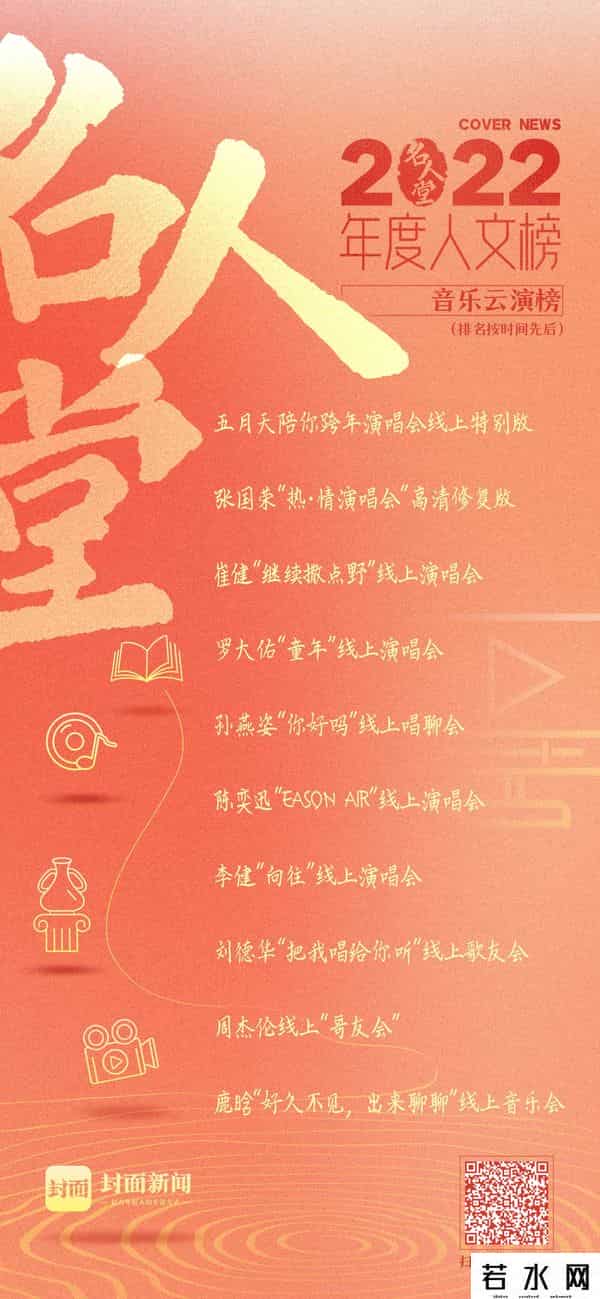 名人堂
COVER NEWS
2022
名人堂
年度人文榜
音乐云演榜
(排名按时间先后)
五月天陪你跨年演唱会线上特别版
张国荣"热·情演唱会"高清修复版
崔健"继续撒点野"线上演唱会
罗大佑"童年"线上演唱会
孙燕姿"你好吗"线上唱聊会
陈奕迅"EASON AIR"线上演唱会
李健"向往"线上演唱会
刘德华"把我唱给你听"线上歌友会
周杰伦线上"哥友会"
鹿晗"好久不见，出来聊聊"线上音乐会
封面
封面新闻
扫
若水网